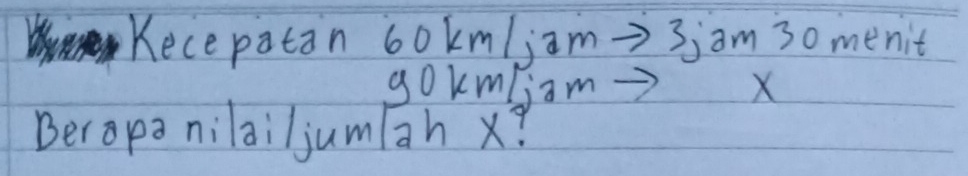 Kecepatan 60 km/jam → 3 jam 30 menit
90 km/jam → X
Berapa nilai/jumlah X?